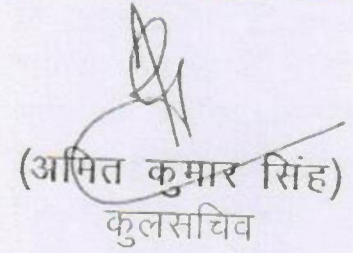 (अमित कुमार सिंह)
कुलसचिव